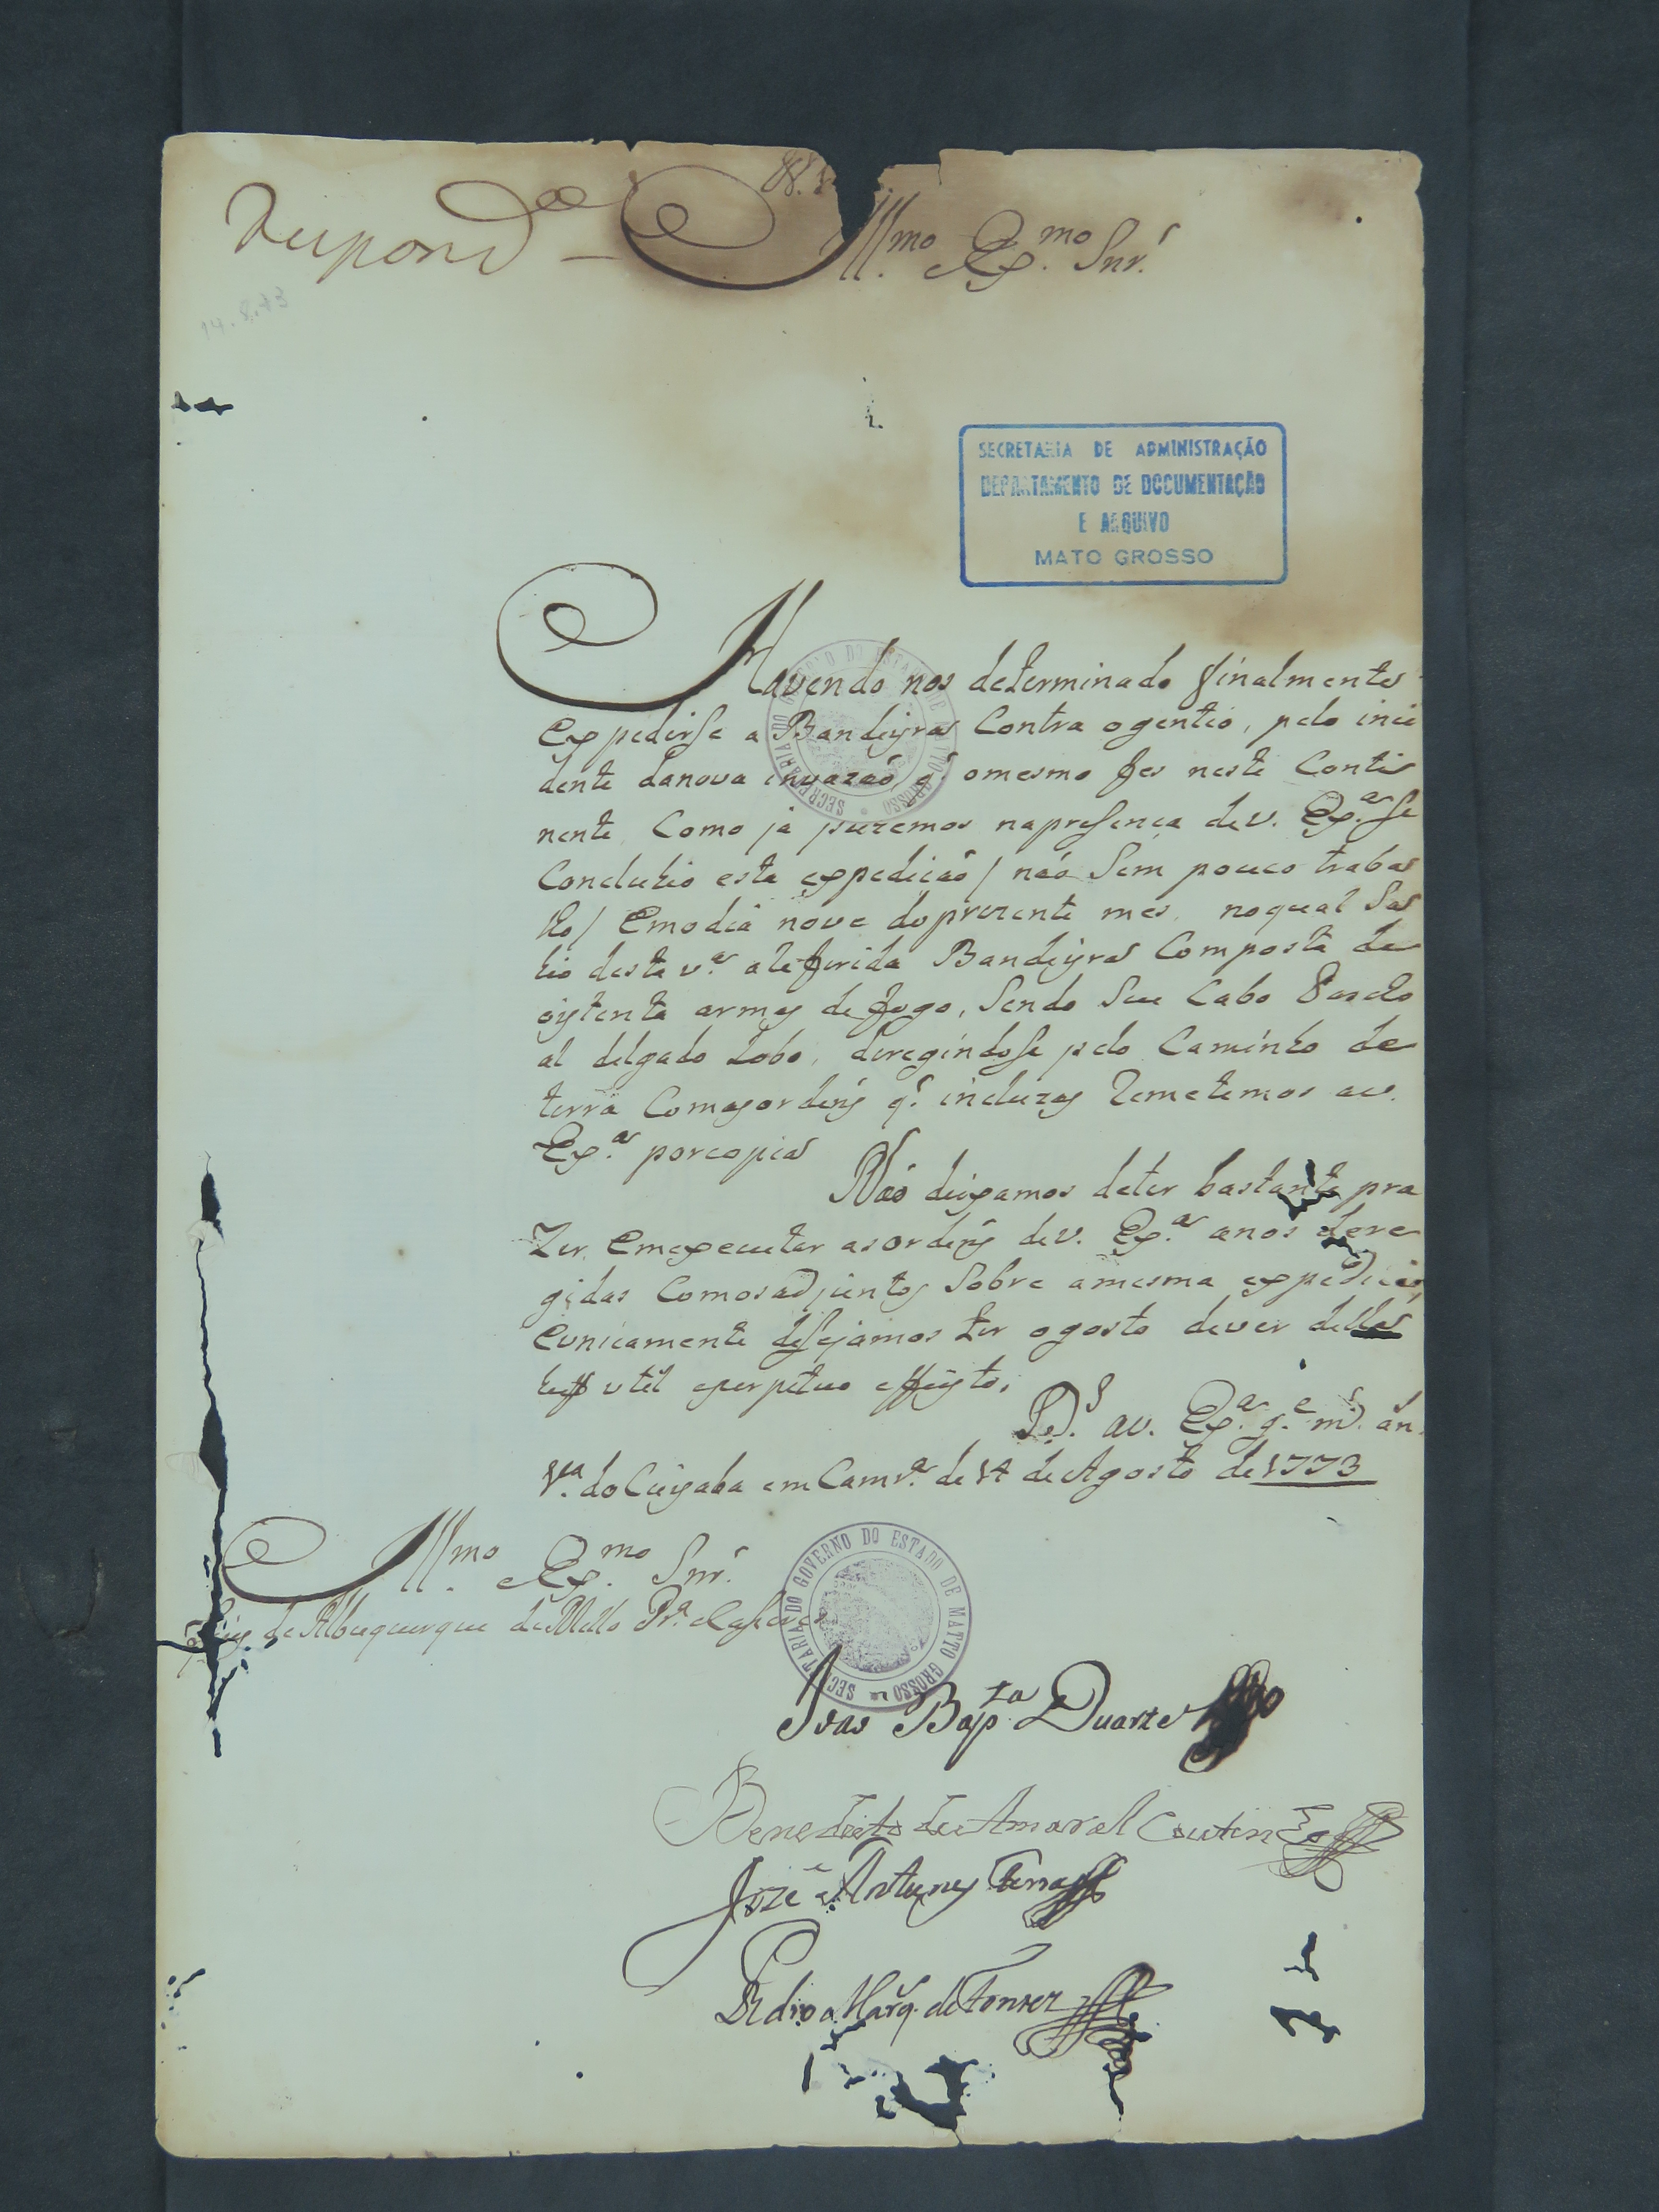 Respond.da — Ill.mo e Ex.mo Snr.
14.8.73
SECRETARIA DE ADMINISTRAÇÃO
DEPARTAMENTO DE DOCUMENTAÇÃO
E ARQUIVO
MATO GROSSO
Havendo nos determinado finalmente
expedirse a Bandeyra Contra ogentio, pelo inci
dente danova invazaõ q̃ omesmo fes neste Conti
nente Como já puzemos napresença dev. Ex.ª se
Concluhio esta expediçaõ / naõ Sem pouco traba
lho / Emodia nove doprezente mes, noqual Sa
hio desta v.ª areferida Bandeyra Composta de
oytenta armas de fogo, Sendo Seu Cabo Pascho
al delgado Lobo, deregindose pelo Caminho de
terra Comasordeñs q̃ incluzas Remetemos av.
Ex.ª porcopia
Naõ deixamos deter bastante pra
zer Emexecutar asordeñs dev. Ex.ª anos dere
gidas Comosadjuntos Sobre amesma expediçaõ,
eunicamente desejamos ter ogosto dever della
hum util eperpetuo effeyto.
D.s av. Ex.ª g.e m.s an.
V.ª do Cuyaba em Camr.ª de 14 de Agosto de 1773
Ill.mo e Ex.mo Snr.
Luis de Albuquerque de Mello Pr.ª e Caseres
SECRETARIA DO GOVERNO DO ESTADO DE MATTO GROSSO
Joaõ Bap.ta Duarte
Benedicto de Amaral Coutinho
José Antunes
Pedro Marq. de